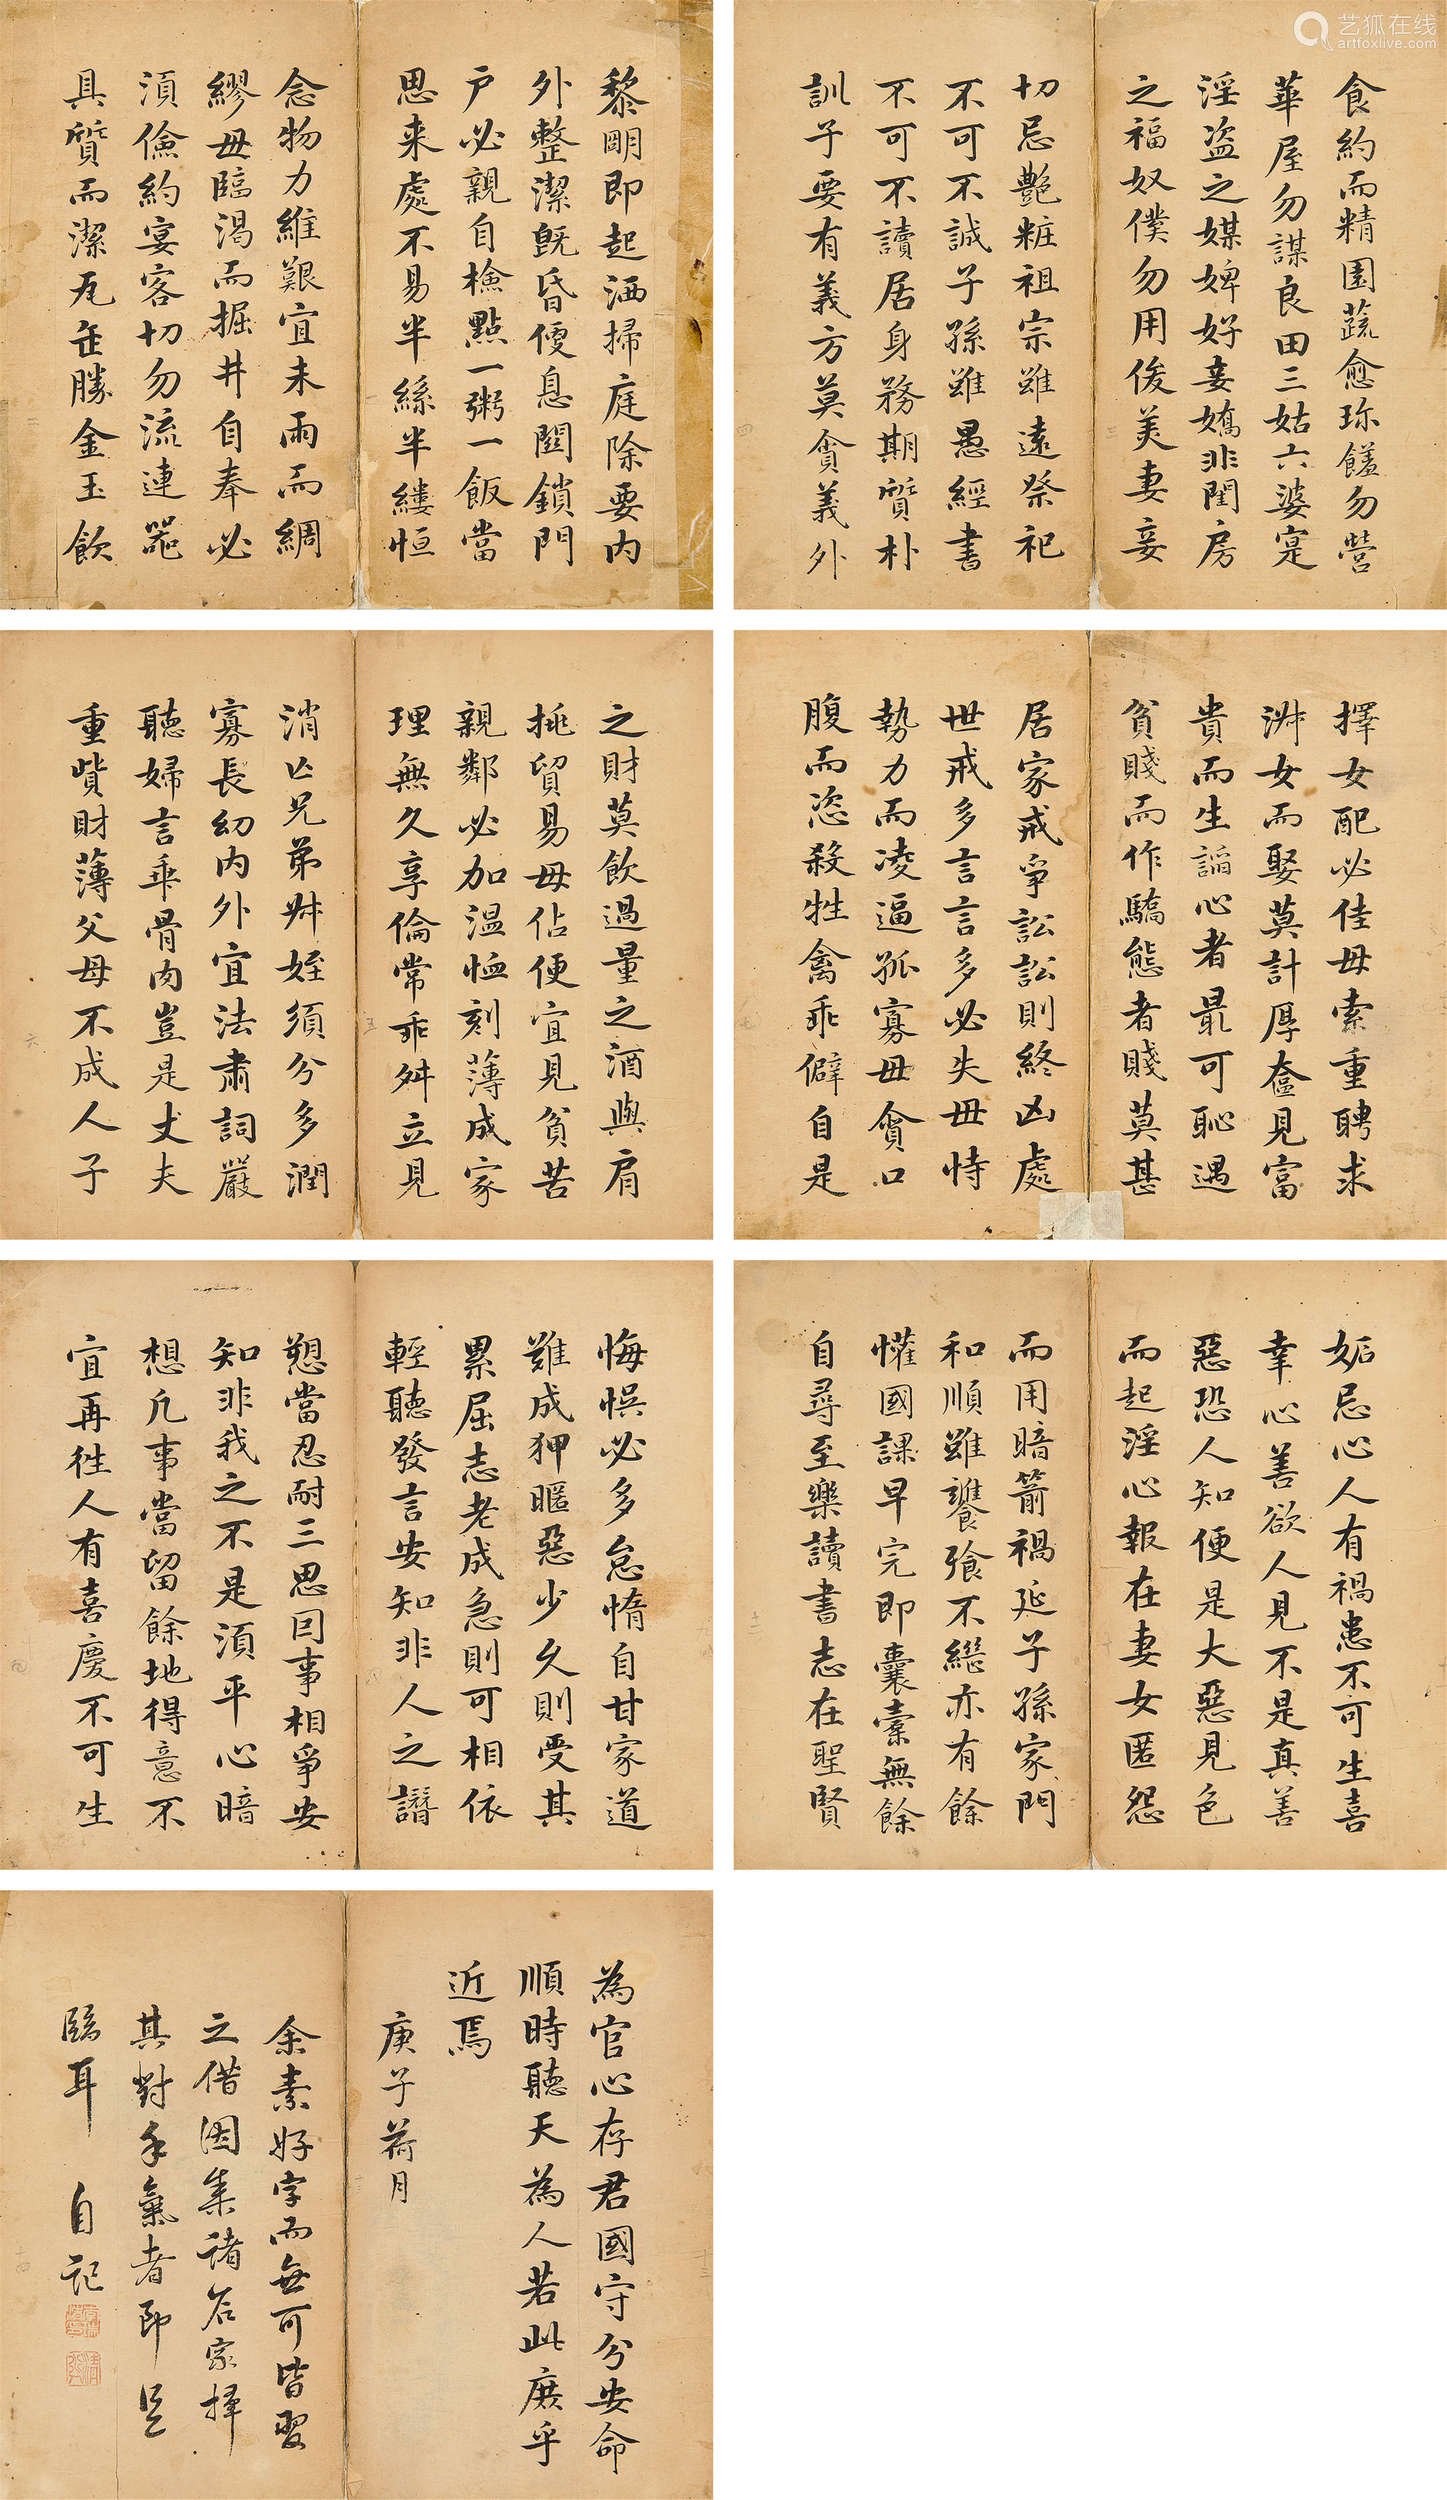 艺狐在线
artfoxlive.com
黎明即起洒掃庭除要内
外整潔既昏便息関鎖門
户必親自檢點一粥一飯當
思来處不易半絲半縷恒
念物力維艱宜未雨而綢
繆毋臨渴而掘井自奉必
湏儉約宴客切勿流連器
具質而潔瓦缶勝金玉飲
食約而精園蔬愈珎饈勿營
華屋勿謀良田三姑六婆寔
淫盗之媒婢好妾嬌非閨房
之福奴僕勿用俊美妻妾
切忌艷粧祖宗雖遠祭祀
不可不誠子孫雖愚經書
不可不讀居身務期質朴
訓子要有義方莫貪義外
之財莫飲過量之酒與肩
挑貿易毋佔便宜見貧苦
親鄰必加温恤刻薄成家
理無久享倫常乖舛立見
消亡兄弟叔姪須分多潤
寡長幼内外宜法肅詞嚴
聽婦言乖骨肉豈是丈夫
重貲財薄父母不成人子
擇女配必佳毋索重聘求
淑女而娶莫計厚奩見富
貴而生謟心者最可恥遇
貧賤而作驕態者賤莫甚
居家戒爭訟訟則終凶處
世戒多言言多必失毋恃
勢力而凌逼孤寡毋貪口
腹而恣殺牲禽乖僻自是
悔悞必多怠惰自甘家道
難成狎暱惡少久則受其
累屈志老成急則可相依
輕聽發言安知非人之譖
愬當忍耐三思因事相爭安
知非我之不是湏平心暗
想凡事當留餘地得意不
宜再徃人有喜慶不可生
妬忌心人有禍患不可生喜
幸心善欲人見不是真善
惡恐人知便是大惡見色
而起淫心報在妻女匿怨
而用暗箭禍延子孫家門
和順雖饔飱不繼亦有餘
懽國課早完即囊橐無餘
自尋至樂讀書志在聖賢
為官心存君國守分安命
順時聽天為人若此庶乎
近焉
庚子荷月
余素好字而無可皆習
之借因集諸名家擇
其對手氣者即是
臨耳 自記